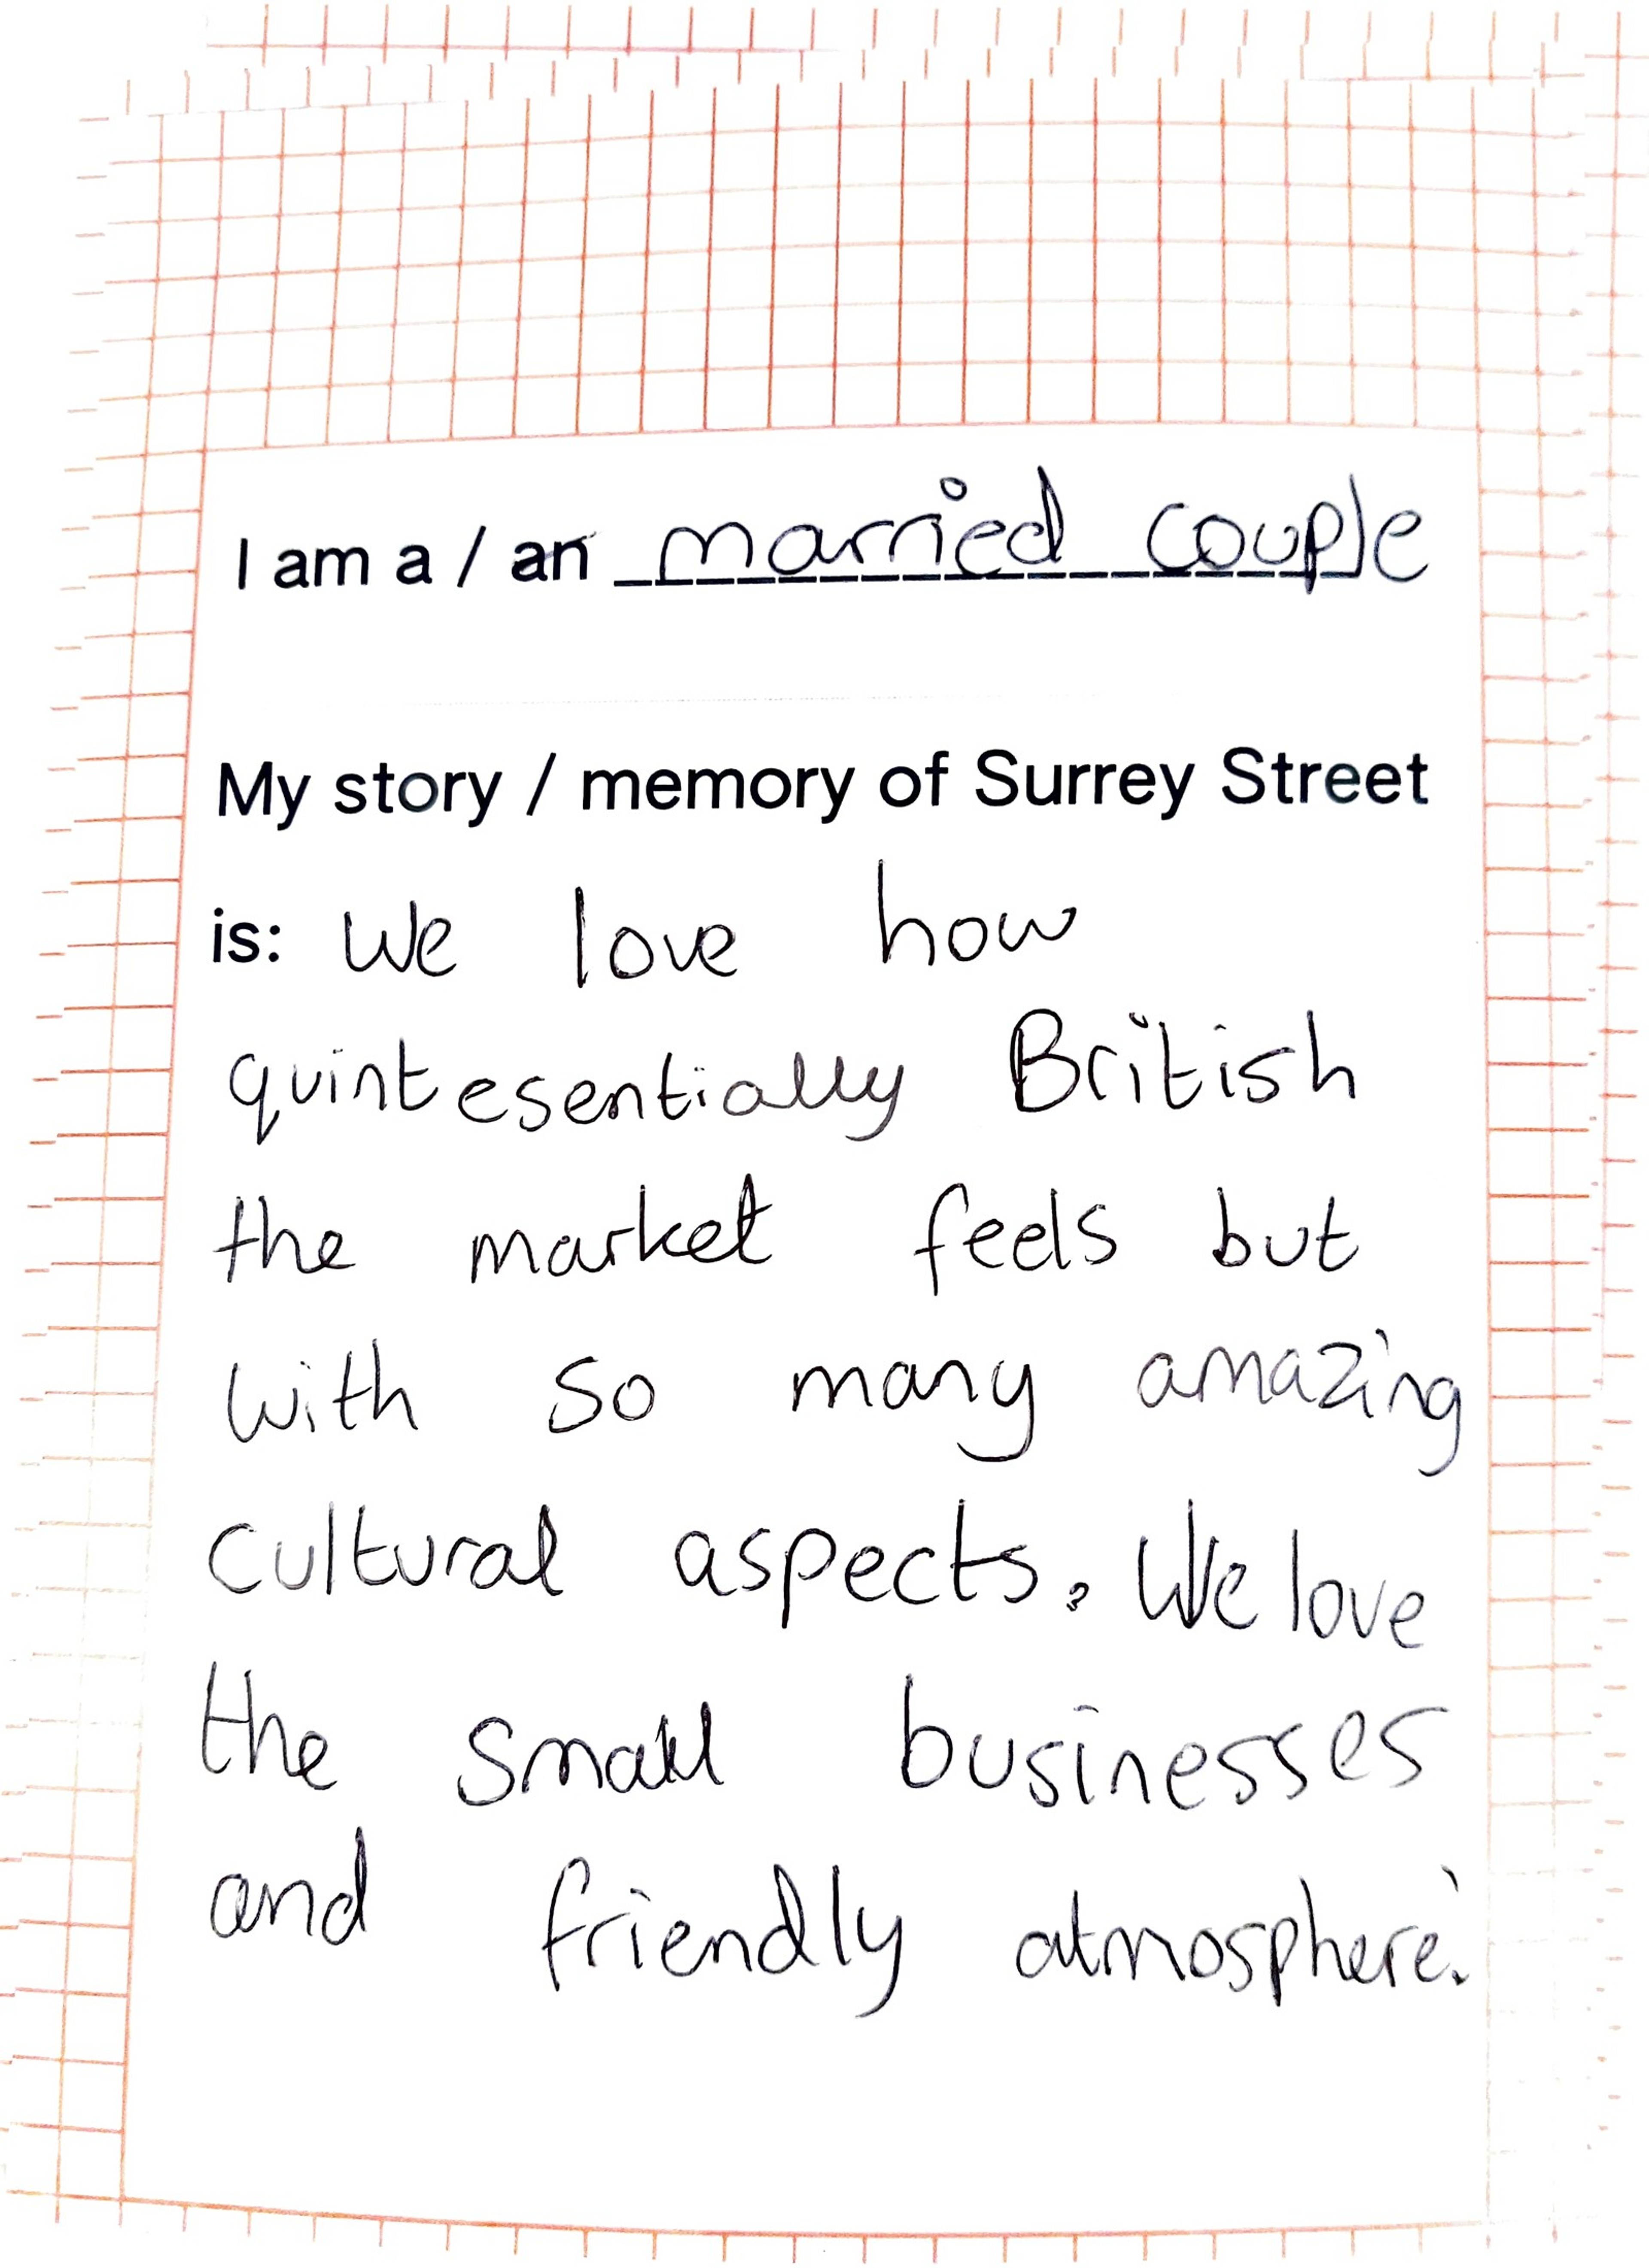 I am a / an married couple
My story / memory of Surrey Street
is: We love how
quintesentially British
the market feels but
with so many amazing
cultural aspects. We love
the small businesses
and friendly atmosphere.